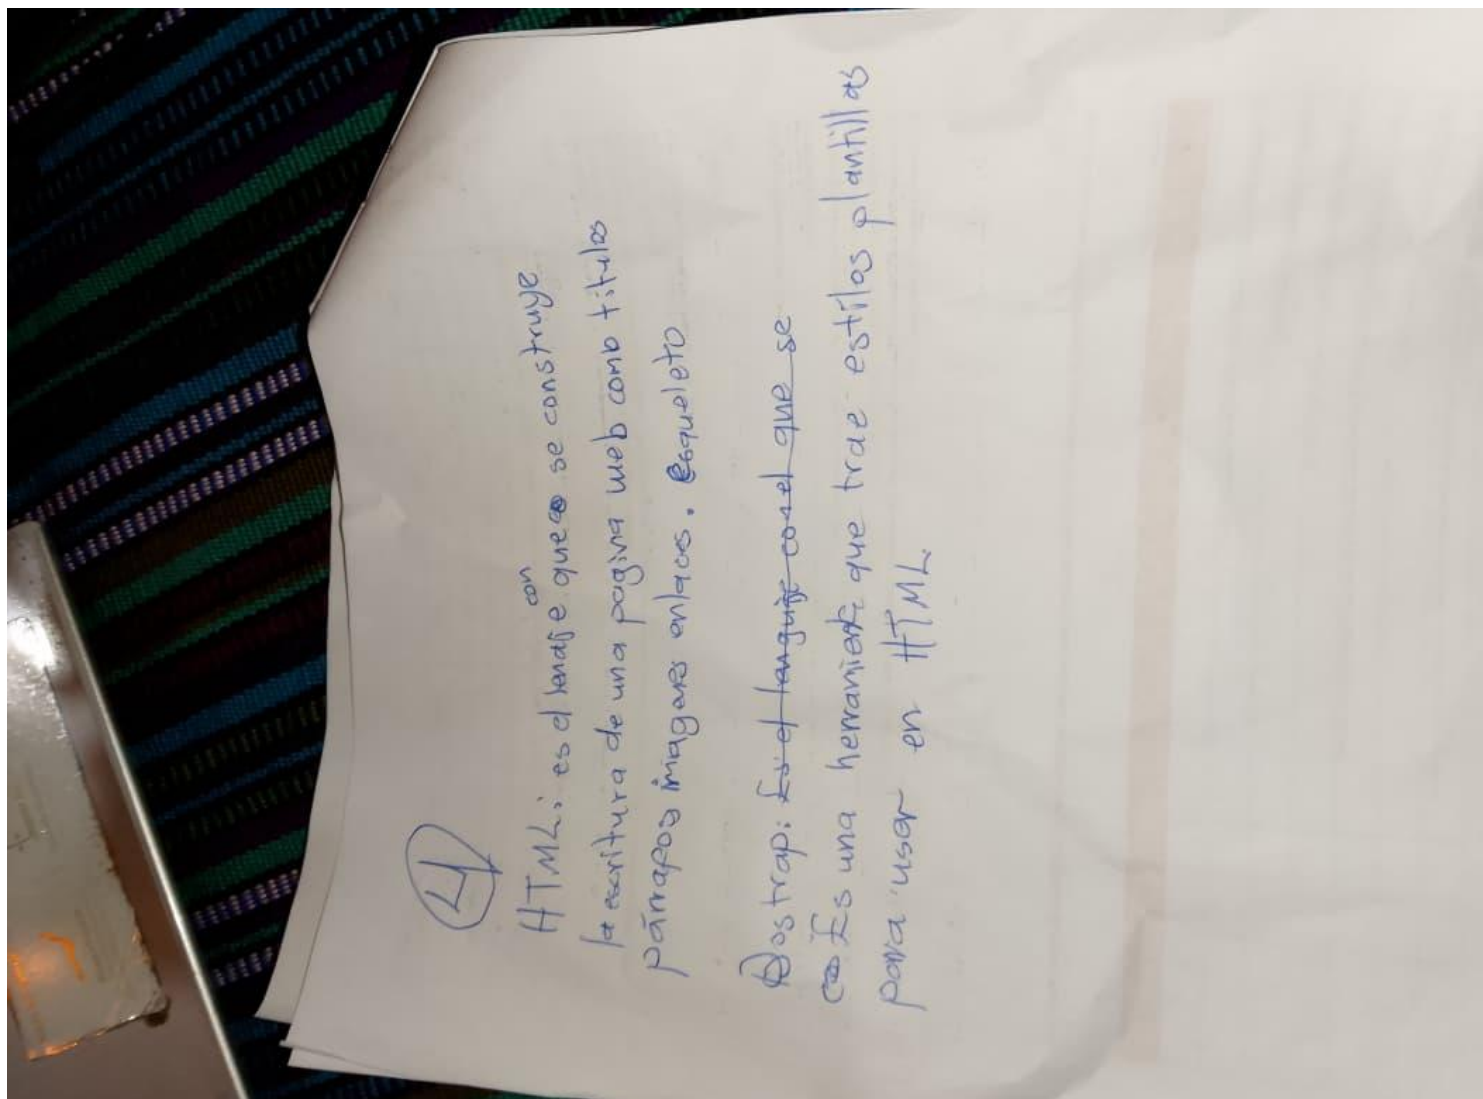 4
HTML: es el lendaje que con se construye
la escritura de una pagina web como titulos
párrapos imagenes enlaces. esqueleto
Bostrap: Es el languije con el que se
Es una herramienta que trae estilos plantillas
para usar en HTML